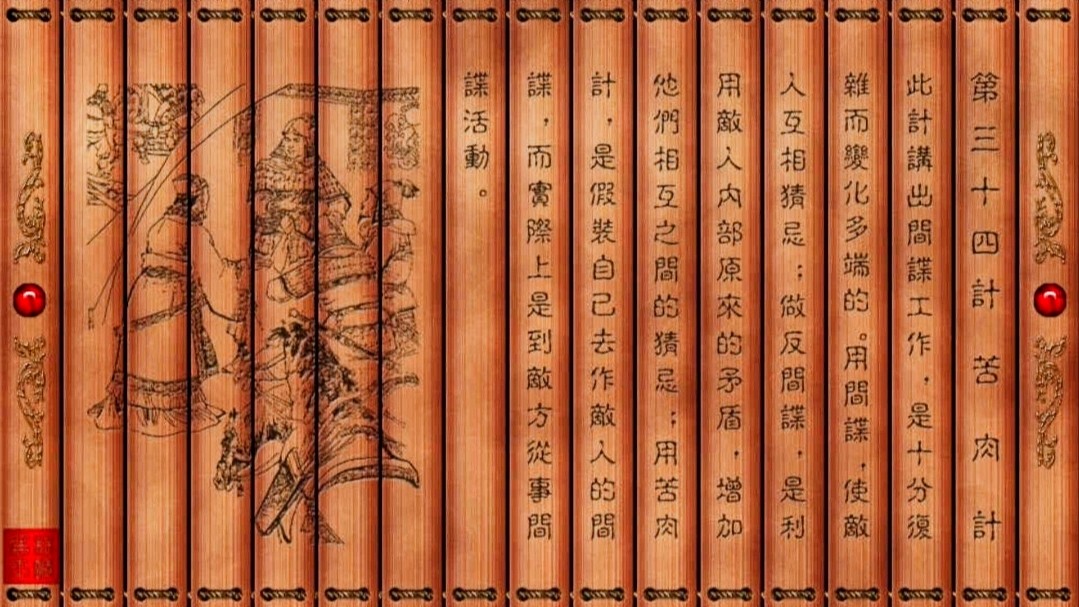 第三十四計 苦肉計
此計講出間諜工作，是十分復
雜而變化多端的。用間諜，使敵
人互相猜忌；做反間諜，是利
用敵人內部原來的矛盾，增加
他們相互之間的猜忌；用苦肉
計，是假裝自己去作敵人的間
諜，而實際上是到敵方從事間
諜活動。